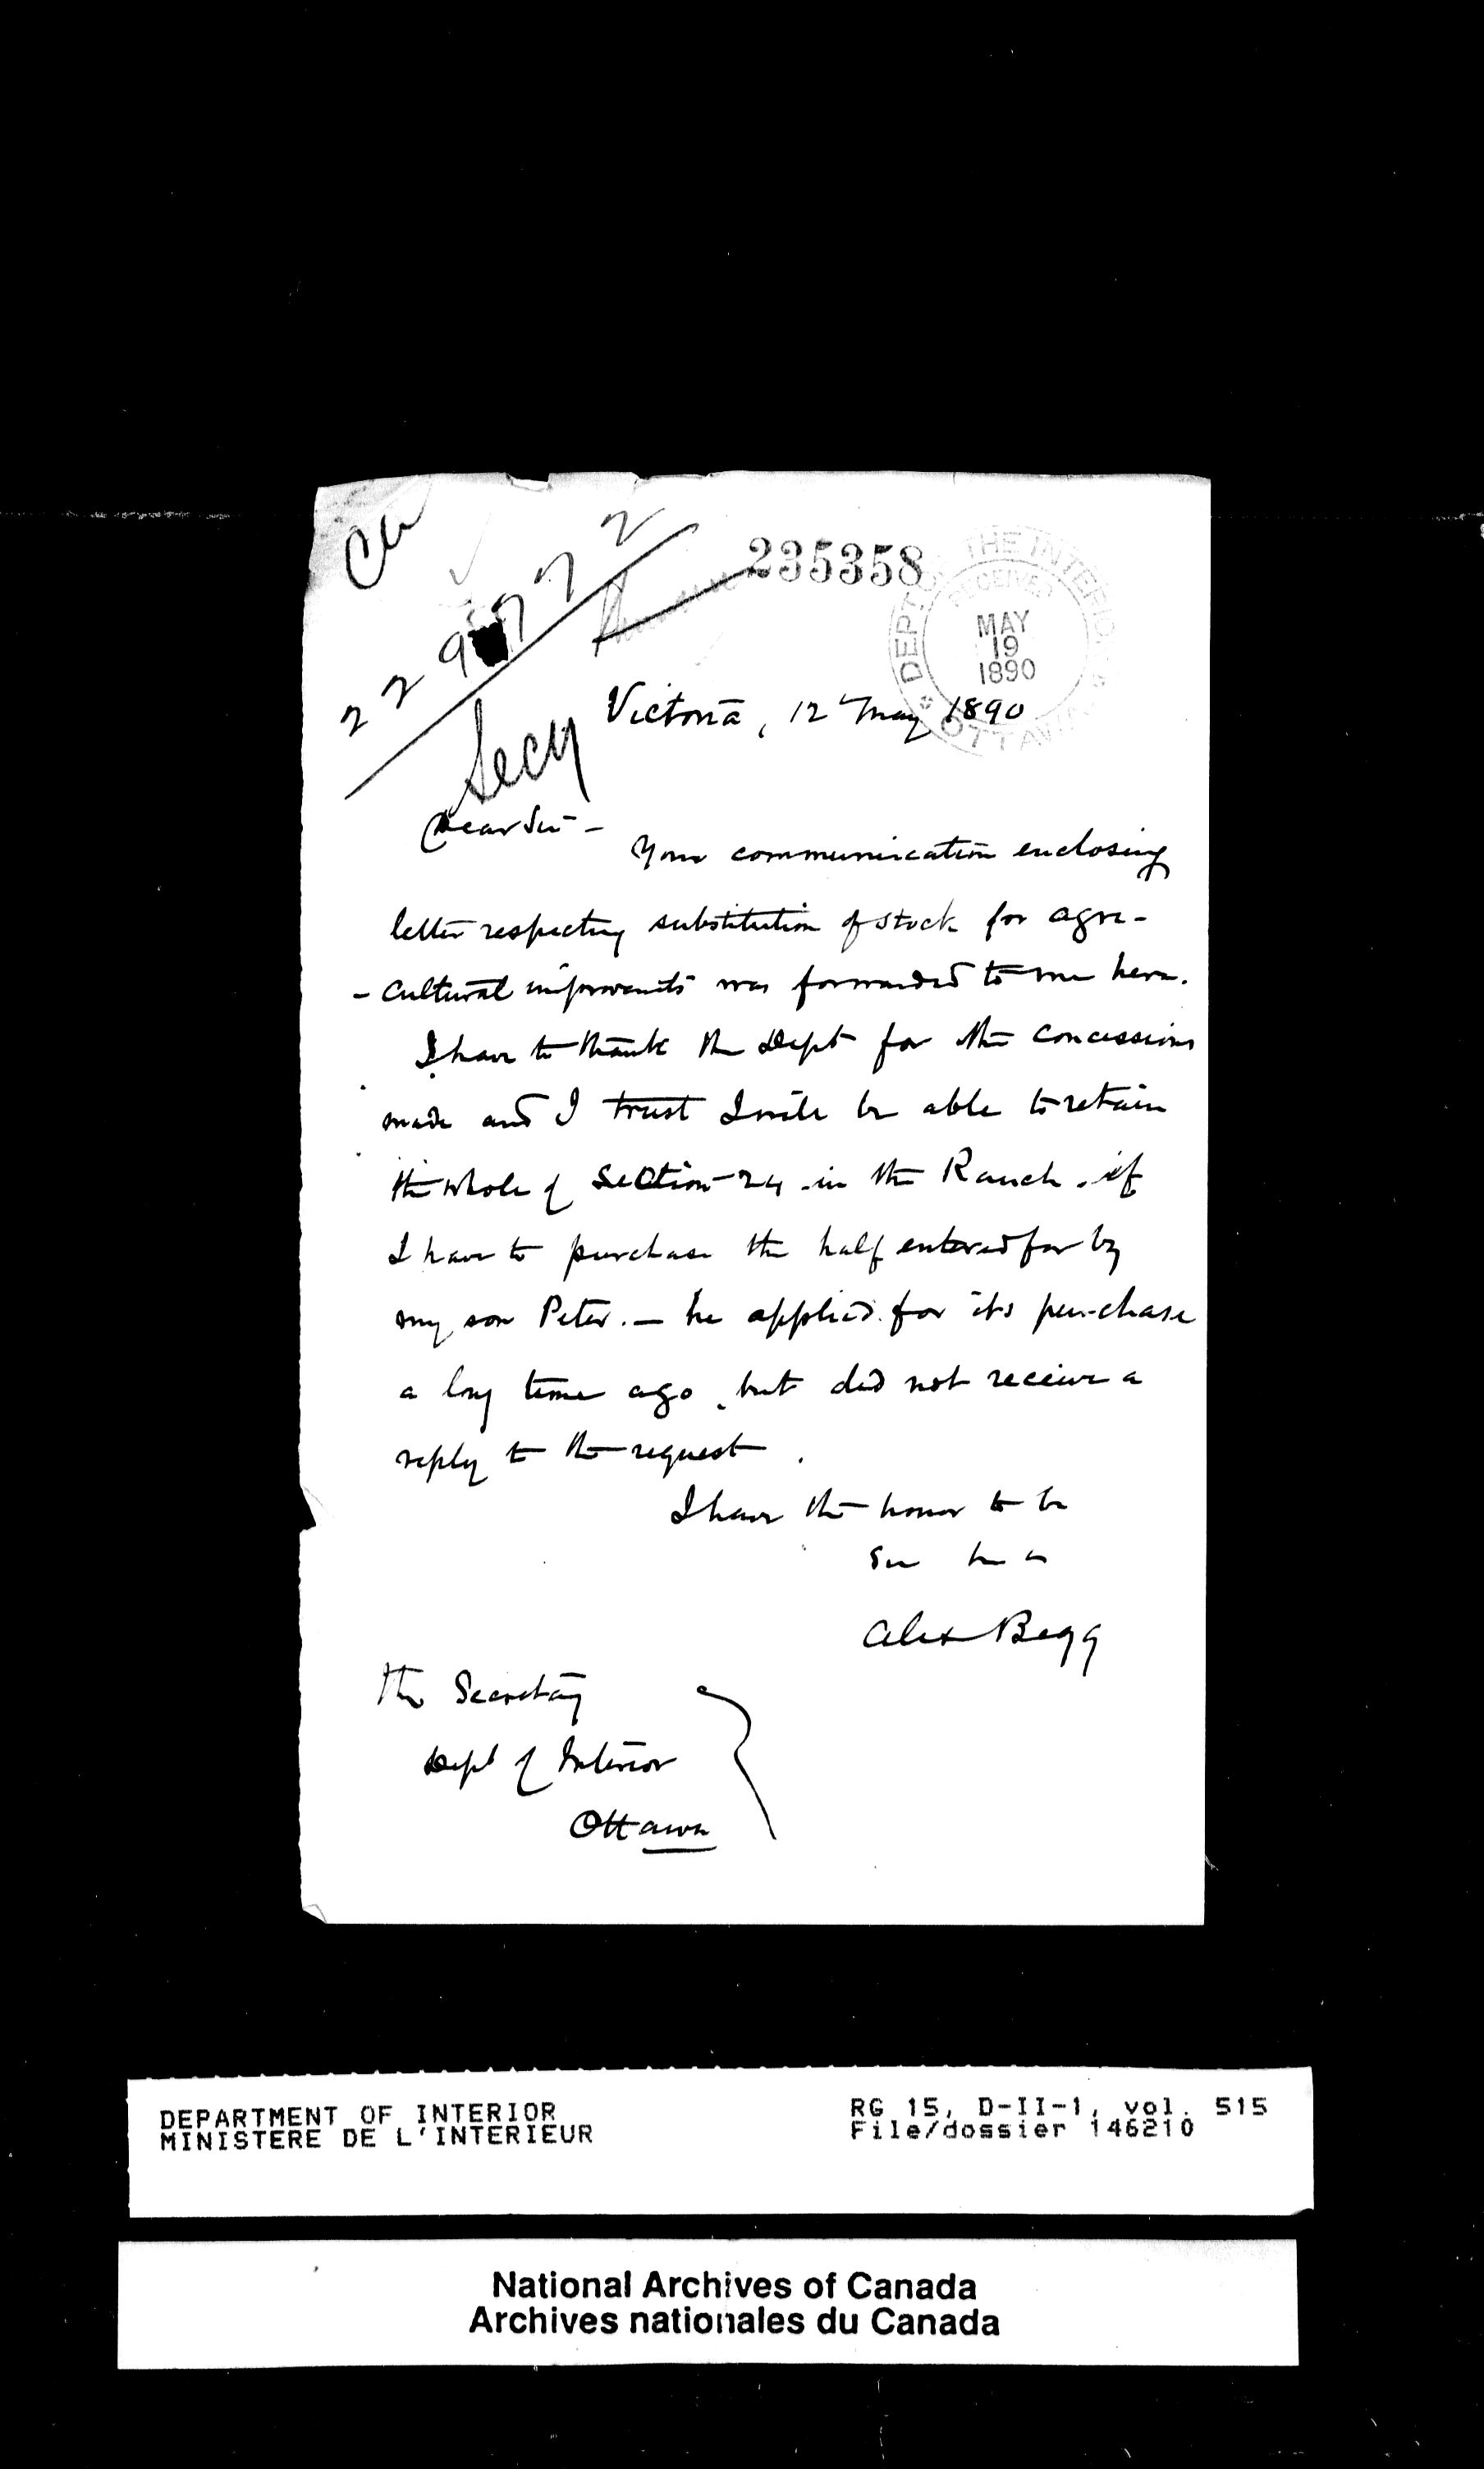 235358
DEPT. THE INTERIOR
RECEIVED
MAY
19
1890
OTTAWA
Secy
Victoria, 12 May 1890
Dear Sir –
Your communication enclosing
letter respecting substitution of stock for agri-
-cultural improvements was forwarded to me here.
I have to thank the Dept for the concessions
made and I trust I will be able to retain
the whole of Section 24 in the Ranch. if
I have to purchase the half entered for by
my son Peter. – he applied for its purchase
a long time ago, but did not receive a
reply to the request.
I have the honor to be
Sir
Alex Begg
The Secretary
Dept of Interior
Ottawa
DEPARTMENT OF INTERIOR
MINISTERE DE L'INTERIEUR
RG 15, D-II-1, vol. 515
File/dossier 146210
National Archives of Canada
Archives nationales du Canada